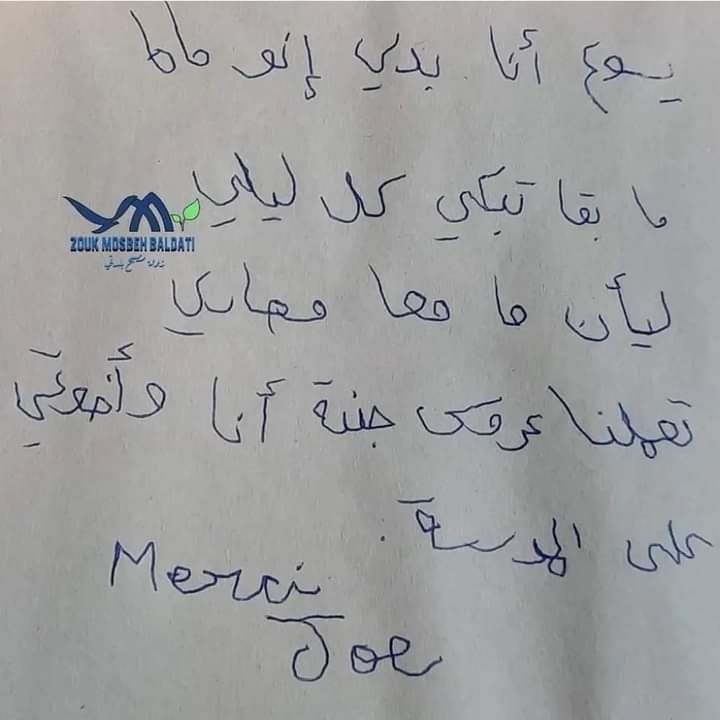 يسوع أنا بدي إنو ماما
ما بقا تبكي كل ليلي
ZOUK MOSBEH BALDATI
زوق مصبح بلدتي
ليأن ما معا مصاري
تعملنا جبنة أنا وأخوتي
على المدرسة.
Merci
Joe